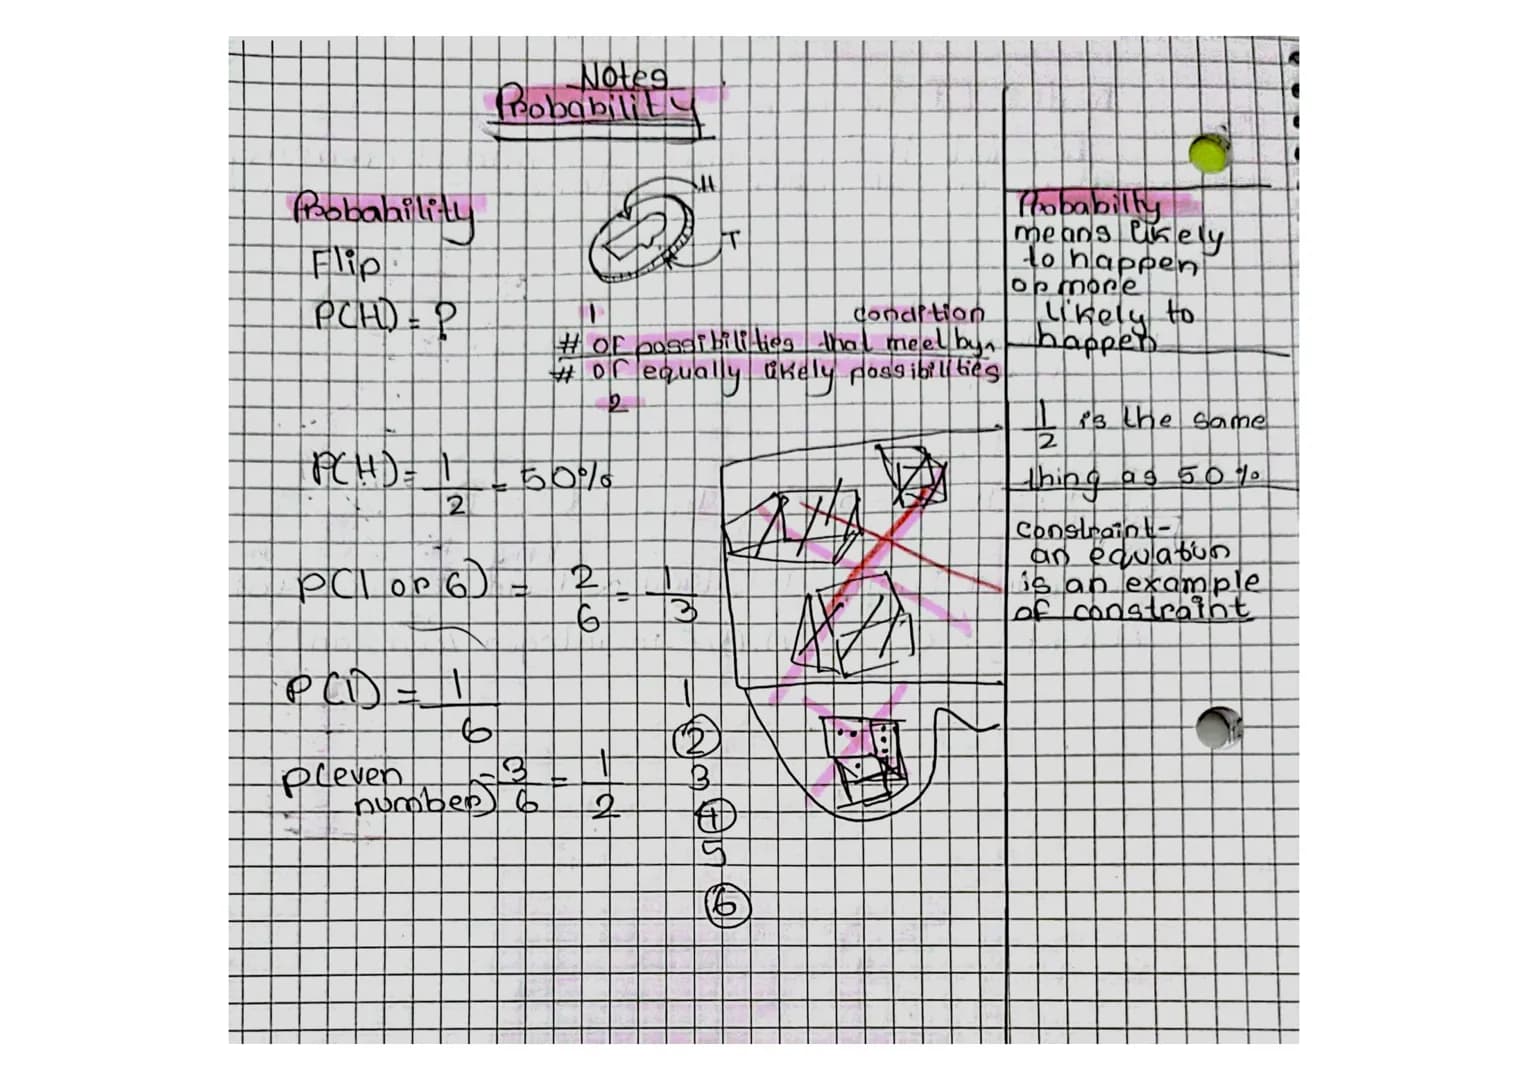 Notes
Probability
Probability
Flip
P(H) = ?
H
T
1
condition
# of possibilities that meet by
# of equally likely possibilities
2
P(H) = 1/2 = 50%
P(1 or 6) = 2/6 = 1/3
P(1) = 1/6
P(even
number) = 3/6 = 1/2
1
2
3
4
5
6
Probabilty
means likely
to happen
or more
likely to
happen
1/2 is the same
thing as 50%
constraint-
an equlation
is an example
of constraint